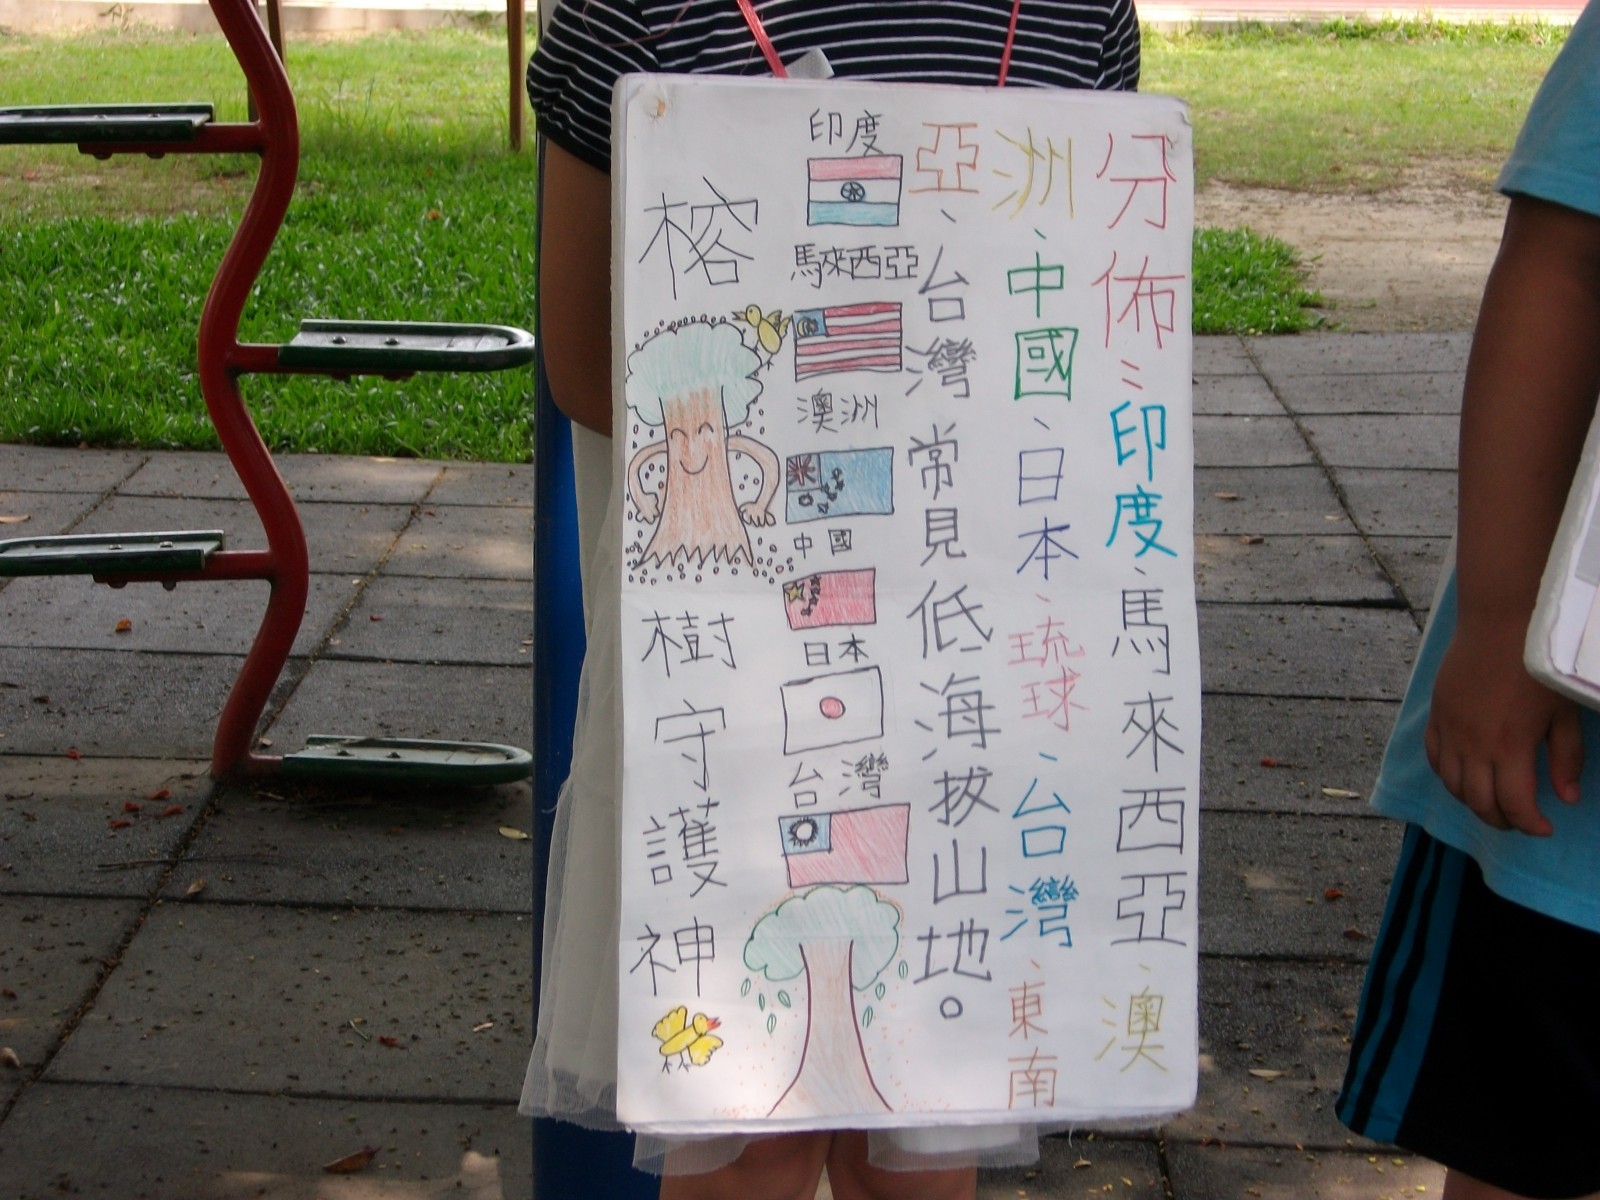 分佈：印度、馬來西亞、澳
洲、中國、日本、琉球、台灣、東南
亞、台灣常見低海拔山地。
印度
馬來西亞
澳洲
中國
日本
台灣
榕樹守護神